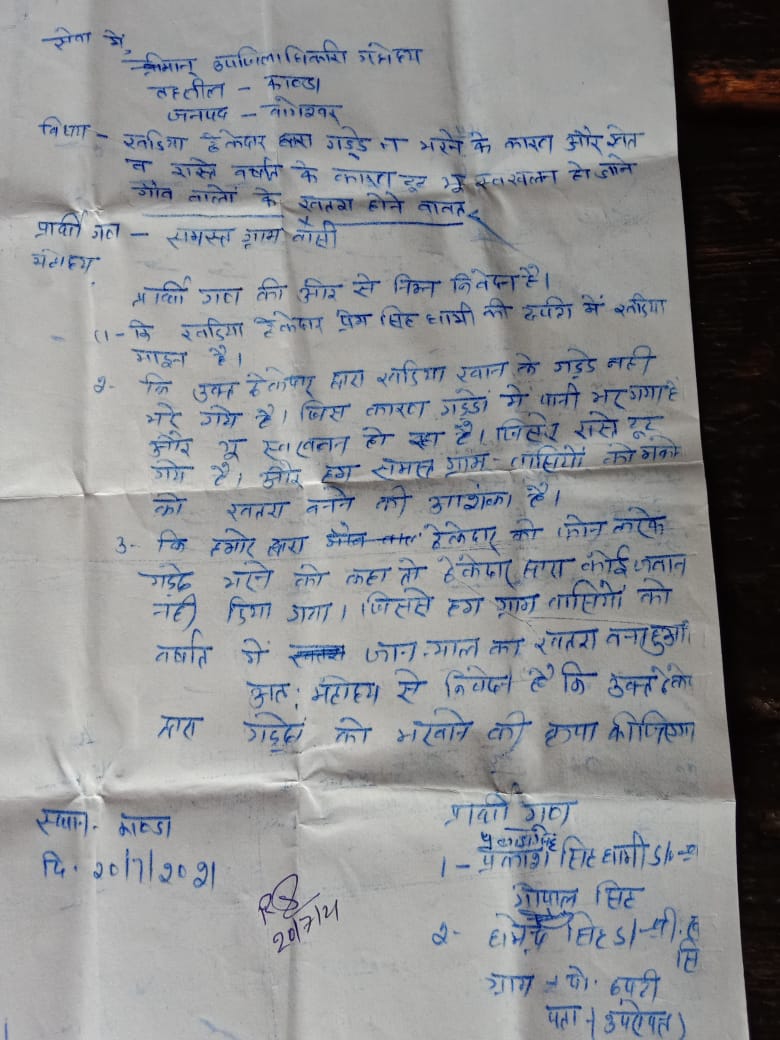 सेवा में,
श्रीमान् उपजिलाधिकारी महोदय
तहसील - काण्डा
जनपद - बागेश्वर
विषय - खडिया ठेकेदार द्वारा गड्डे न भरने के कारण और खेत
व रास्ते वर्षात के कारण टूट भू स्वखलन हो जाने
गाँव वालों के खतरा होने बावत्
प्रार्थी गण - समस्त ग्राम वासी
महोदय,
प्रार्थी गण की ओर से निम्न निवेदन है।
(1- कि खडिया ठेकेदार प्रेम सिंह धामी की में खडिया
माइन है।
2- कि उक्त ठेकेदार द्वारा खडिया खान के गड्डे नही
भरे गये है। जिस कारण गड्डों में पानी भर गया है
और भू स्वखलन हो रहा है। जिससे रास्ते टूट
गये है। और हम समस्त ग्राम-वासियों को मको
को खतरा बनने की आशंका है।
3- कि हमारे द्वारा ठेकेदार को फोन करके
गड्डे भरने को कहा तो ठेकेदार द्वारा कोई जवाब
नही दिया गया। जिससे हम ग्राम वासियों को
वर्षात में जान-माल का खतरा बना हुआ
अतः महोदय से निवेदन है कि उक्त ठेके
द्वारा गड्डों को भरवाने की कृपा कीजिएगा
स्थान- काण्डा
दि. 20/7/2021
20/7/21
प्रार्थी गण
1- प्रकाश सिंह धामी S/o श्री
गोपाल सिंह
2- सिंह S/o श्री.
सि
ग्राम - पो.
पता -